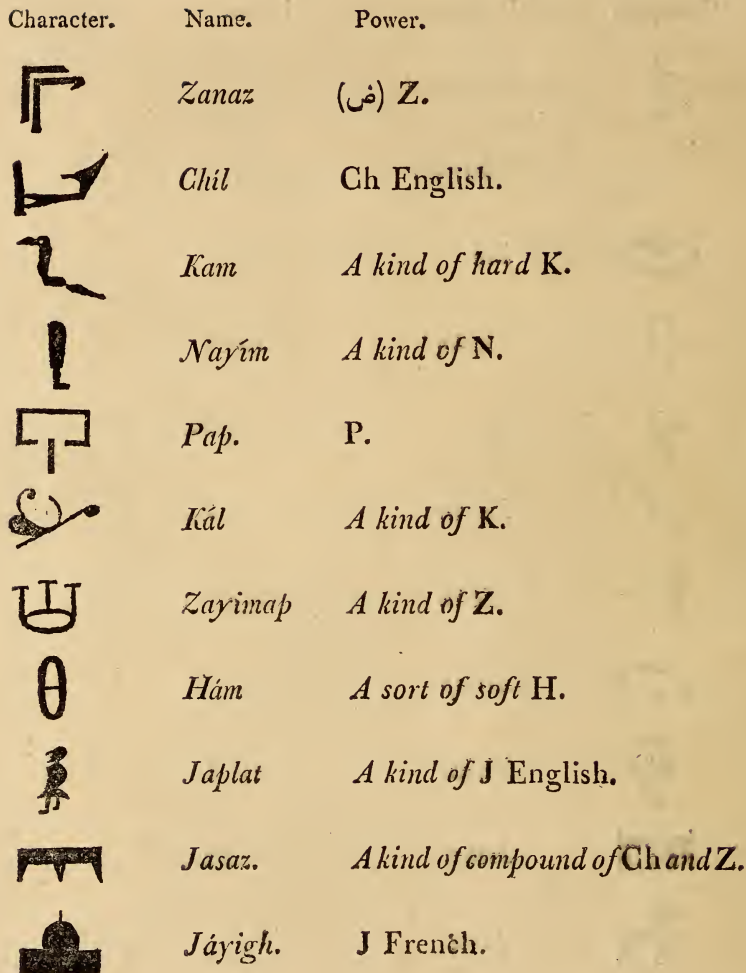 Character. Name. Power.
Zanaz (ض) Z.
Chíl Ch English.
Kam A kind of hard K.
Nayím A kind of N.
Pap. P.
Kál A kind of K.
Zayimap A kind of Z.
Hám A sort of soft H.
Japlat A kind of J English.
Jasaz. A kind of compound of Ch and Z.
Jáyigh. J French.